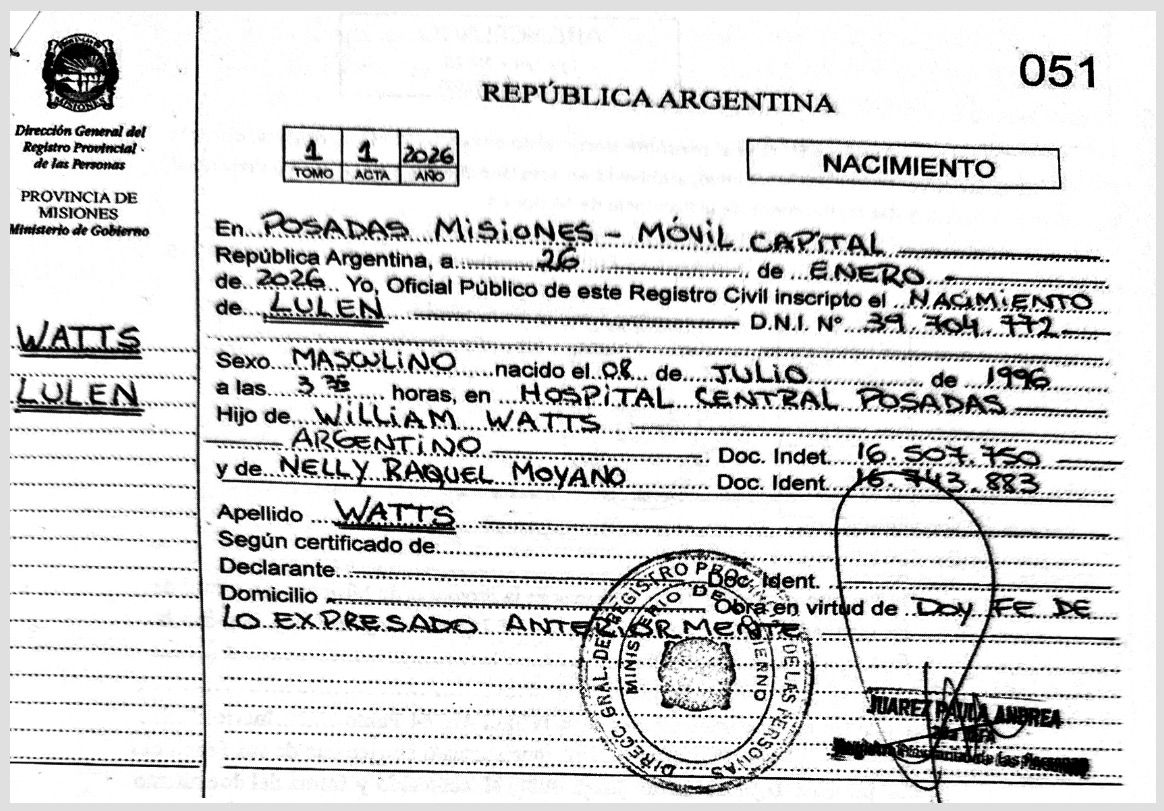 051
REPÚBLICA ARGENTINA
MISIONES
Dirección General del
Registro Provincial
de las Personas
PROVINCIA DE
MISIONES
Ministerio de Gobierno
1 1 2026
TOMO ACTA AÑO
NACIMIENTO
WATTS
LULEN
En POSADAS MISIONES - MÓVIL CAPITAL
República Argentina, a 26 de ENERO
de 2026 Yo, Oficial Público de este Registro Civil inscripto el NACIMIENTO
de LULEN D.N.I. Nº 39.704.772
Sexo MASCULINO nacido el 08 de JULIO de 1996
a las 3 horas, en HOSPITAL CENTRAL POSADAS
Hijo de WILLIAM WATTS
ARGENTINO Doc. Indet. 16.507.750
y de NELLY RAQUEL MOYANO Doc. Ident. 16.743.883
Apellido WATTS
Según certificado de
Declarante Doc. Ident.
Domicilio Obra en virtud de DOY FE DE
LO EXPRESADO ANTERIORMENTE
DIRECC. GRAL. DE REGISTRO PROV. DE LAS PERSONAS
MINISTERIO DE GOBIERNO
JUAREZ PAULA ANDREA
de las Personas